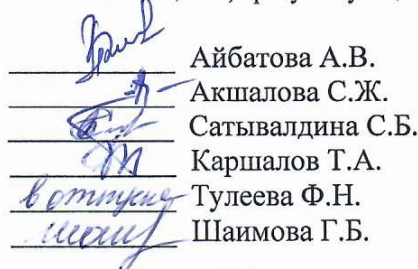 Айбатова А.В.
Акшалова С.Ж.
Сатывалдина С.Б.
Каршалов Т.А.
в отпуске Тулеева Ф.Н.
Шаимова Г.Б.